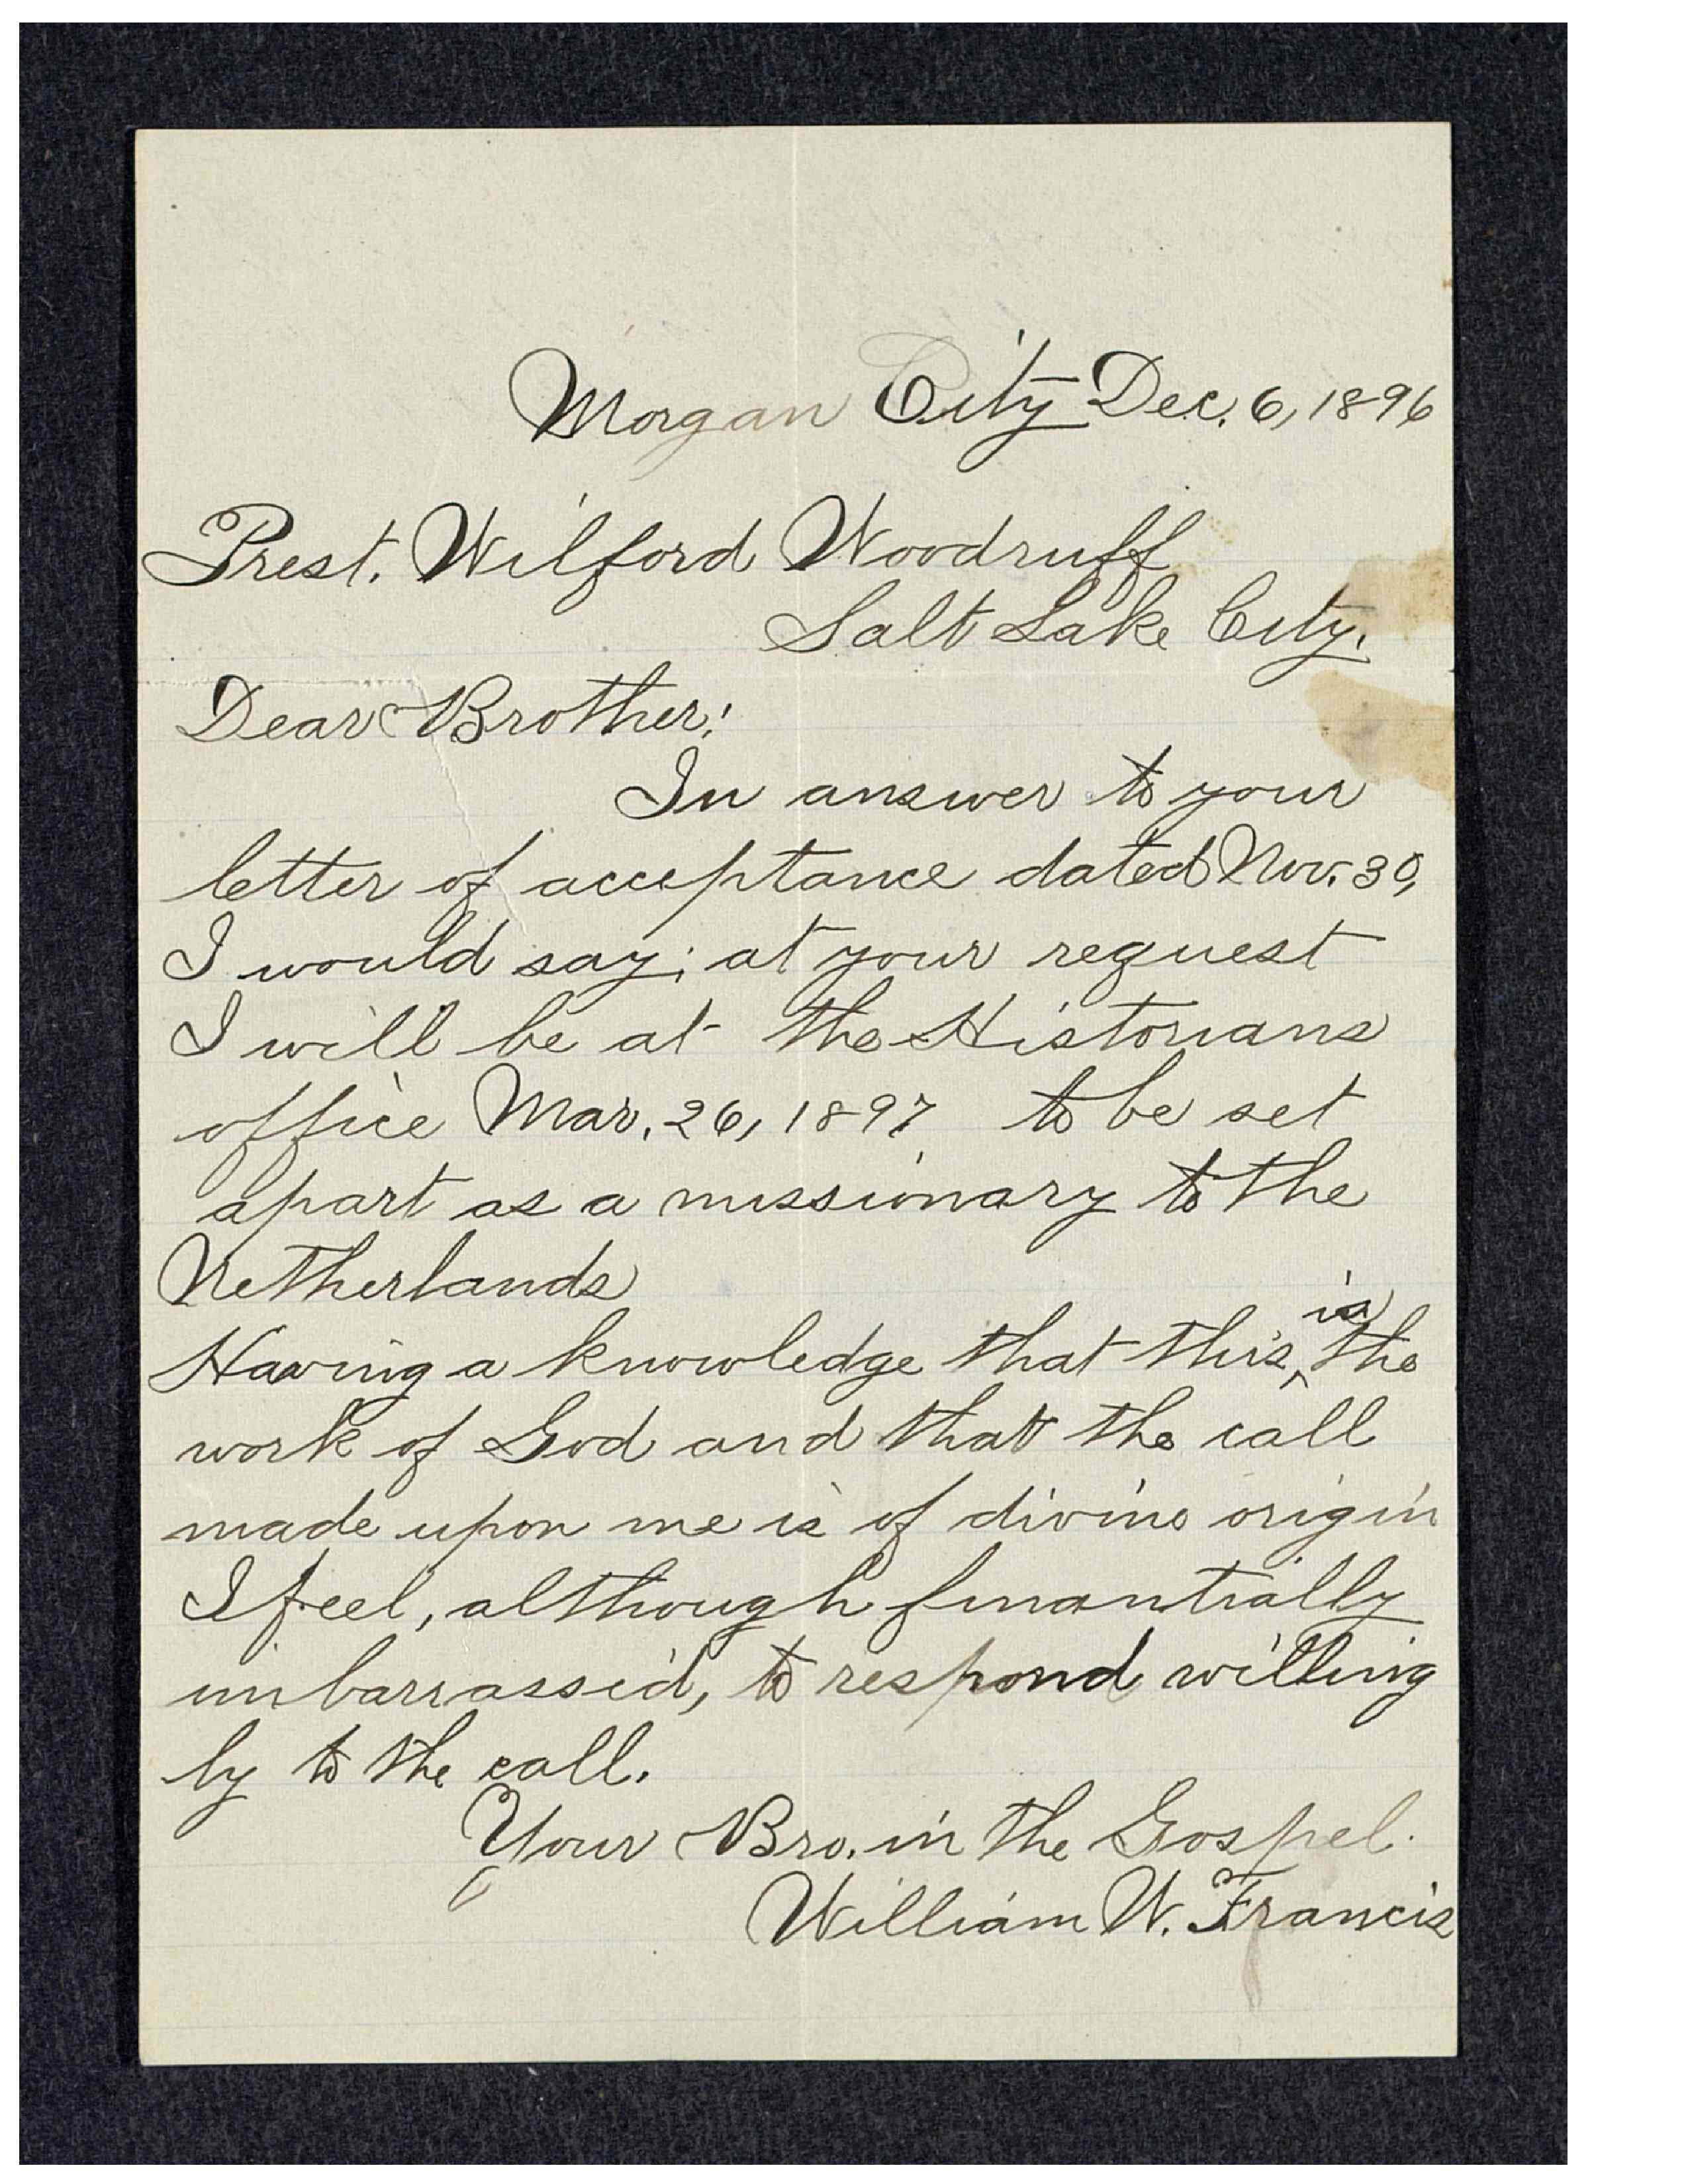 Morgan City Dec. 6, 1896
Prest. Wilford Woodruff
Salt Lake City.
Dear Brother:
In answer to your
letter of acceptance dated Nov. 30,
I would say; at your request
I will be at the Historians
office Mar. 26, 1897 to be set
apart as a missionary to the
Netherlands
Having a knowledge that this ^is the
work of God and that the call
made upon me is of divine origin
I feel, although finantially
imbarrassed, to respond willing
ly to the call.
Your Bro. in the Gospel.
William W. Francis